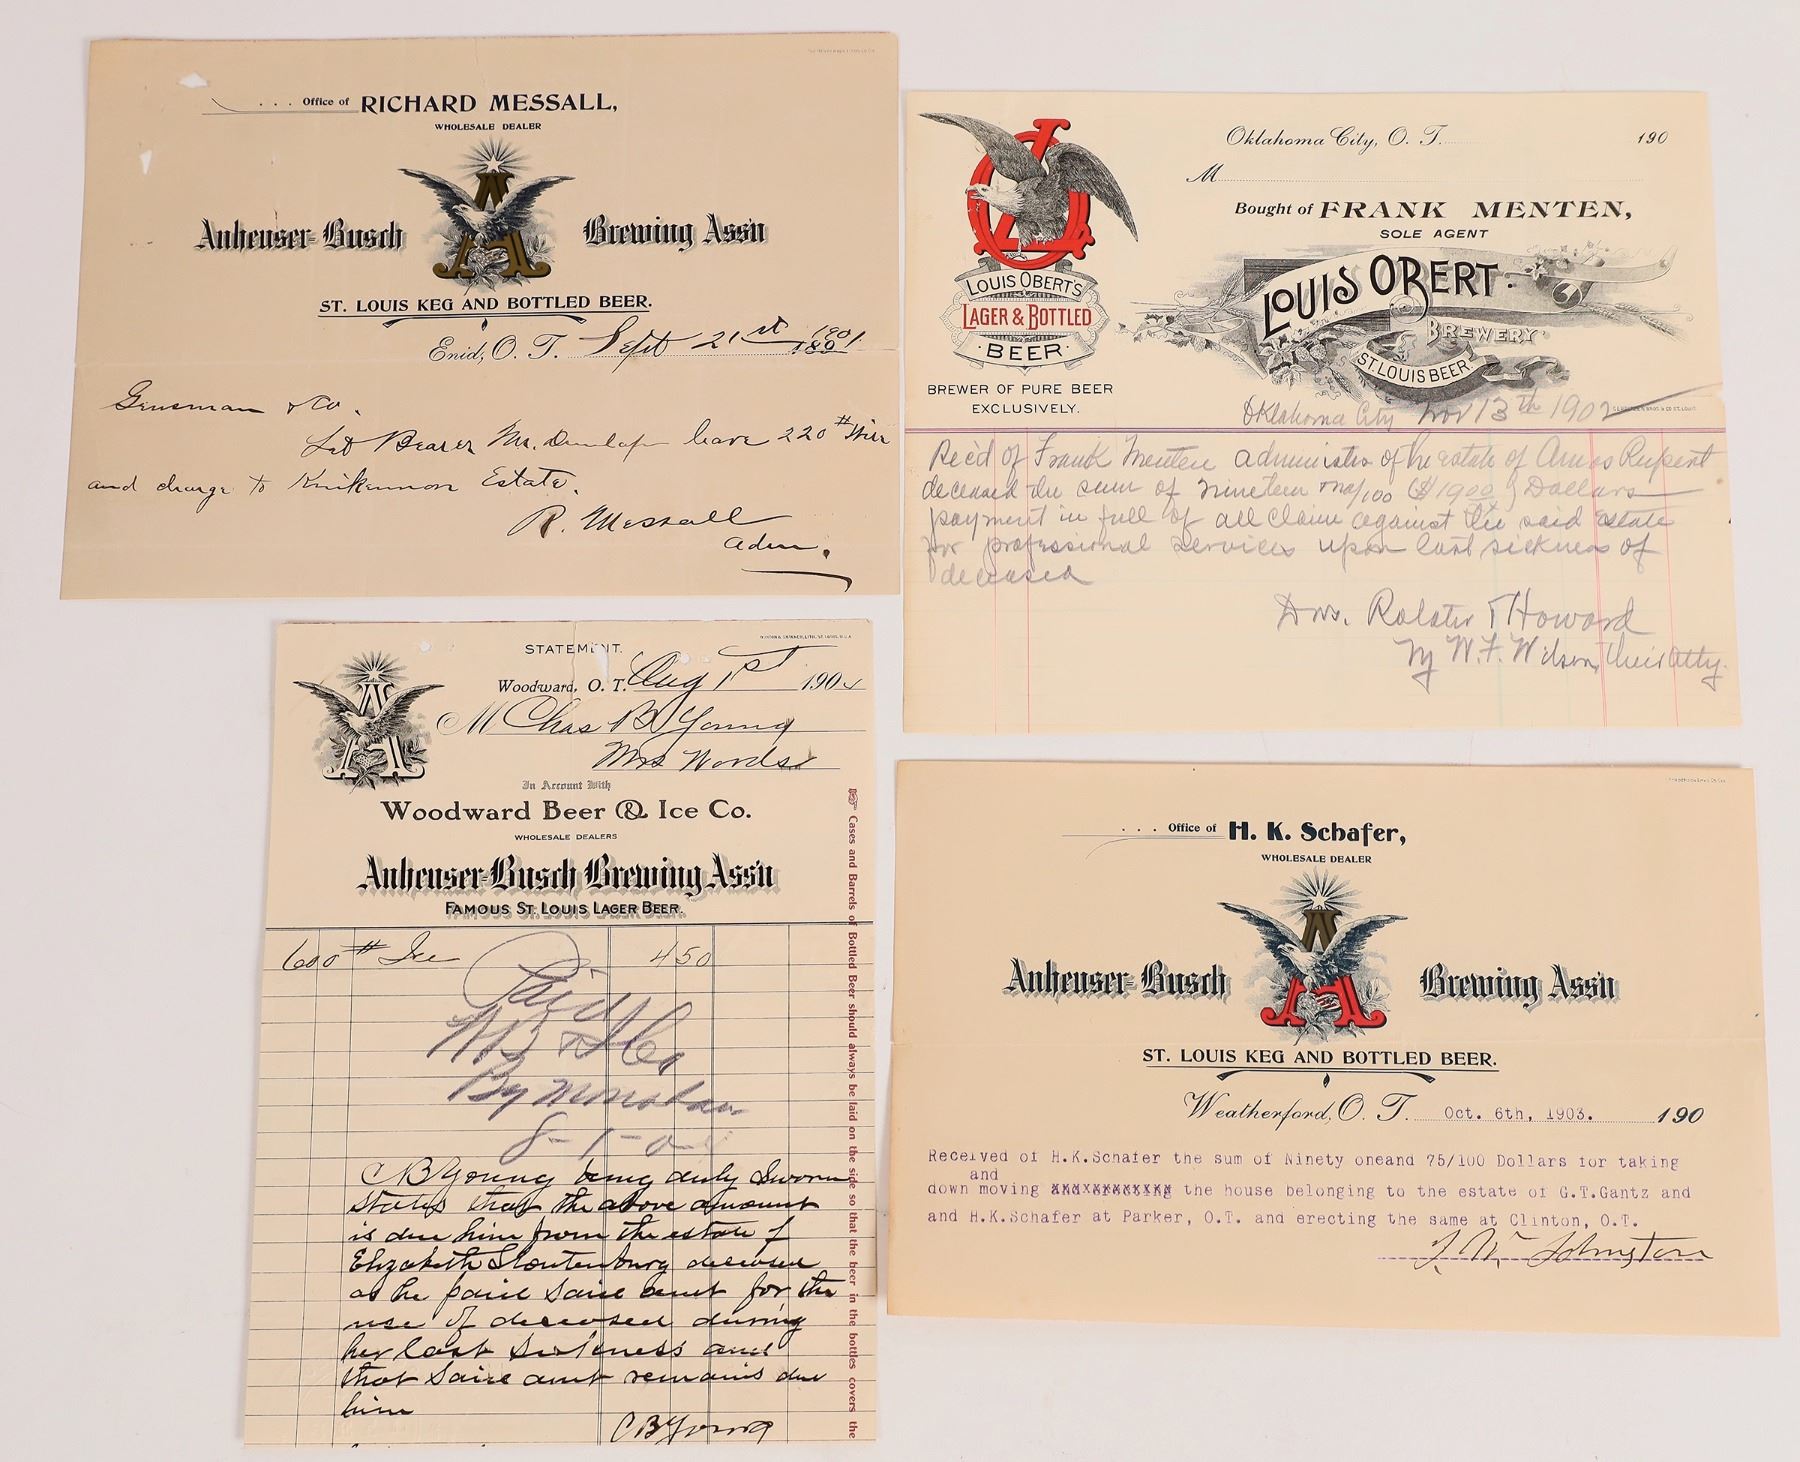 . . . Office of RICHARD MESSALL,
WHOLESALE DEALER
Anheuser-Busch Brewing Ass'n
ST. LOUIS KEG AND BOTTLED BEER.
Enid, O. T. Sept 21st 1901
Gensman & Co.
Let Bearer Mr. Dunlap have 220 # Wire
and charge to Estate.
R. Messall
Adm.
Oklahoma City, O. T. 190
M
Bought of FRANK MENTEN,
SOLE AGENT
LOUIS OBERT
BREWERY
ST. LOUIS BEER.
LOUIS OBERT'S
LAGER & BOTTLED
BEER
BREWER OF PURE BEER
EXCLUSIVELY.
Oklahoma City Nov 13th 1902
Rec'd of Frank Menten administrator of the estate of Amos
deceased the sum of nineteen no/100 ($19.00) Dollars
payment in full of all claim against the said Estate
for professional services upon last sickness of
deceased
Drs. Rolater & Howard
By W. F. Wilson, Their Atty.
STATEMENT.
Woodward, O. T. Aug 1st 1904
M Chas B Young
Mrs Woods
In Account With
Woodward Beer & Ice Co.
WHOLESALE DEALERS
Anheuser-Busch Brewing Ass'n
FAMOUS ST. LOUIS LAGER BEER.
600 # Ice 4 50
Paid
W B & I Co
By Monahan
8-1-04
C B Young being duly sworn
states that the above amount
is due him from the estate of
Elizabeth Stoutenburg deceased
as he paid said amt for the
use of deceased during
her last sickness and
that said amt remains due
him
C B Young
Cases and Barrels of Bottled Beer should always be laid on the side so that the beer in the bottles covers the
. . . Office of H. K. Schafer,
WHOLESALE DEALER
Anheuser-Busch Brewing Ass'n
ST. LOUIS KEG AND BOTTLED BEER.
Weatherford, O. T. Oct. 6th, 1903. 190
Received of H.K.Schafer the sum of Ninety oneand 75/100 Dollars for taking
and
down moving and erecting the house belonging to the estate of G.T.Gantz and
and H.K.Schafer at Parker, O.T. and erecting the same at Clinton, O.T.
J. W. Johnston